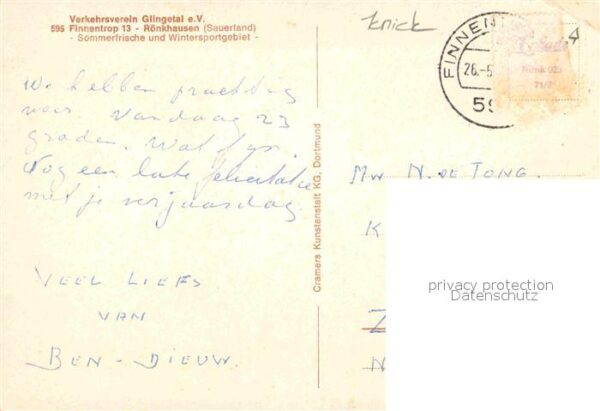 Verkehrsverein Glingetal e.V.
595 Finnentrop 13 - Rönkhausen (Sauerland)
- Sommerfrische und Wintersportgebiet -
knick
FINNEN
26.-5
59
4
We hebben prachtig
weer. Vandaag 23
graden. Wat fijn.
Nog een late felicitatie
met je verjaardag.
VEEL LIEFS
VAN
BEN - DIEUW.
Cramers Kunstanstalt KG, Dortmund
MW N. DE JONG.
K
Z
N
privacy protection
Datenschutz